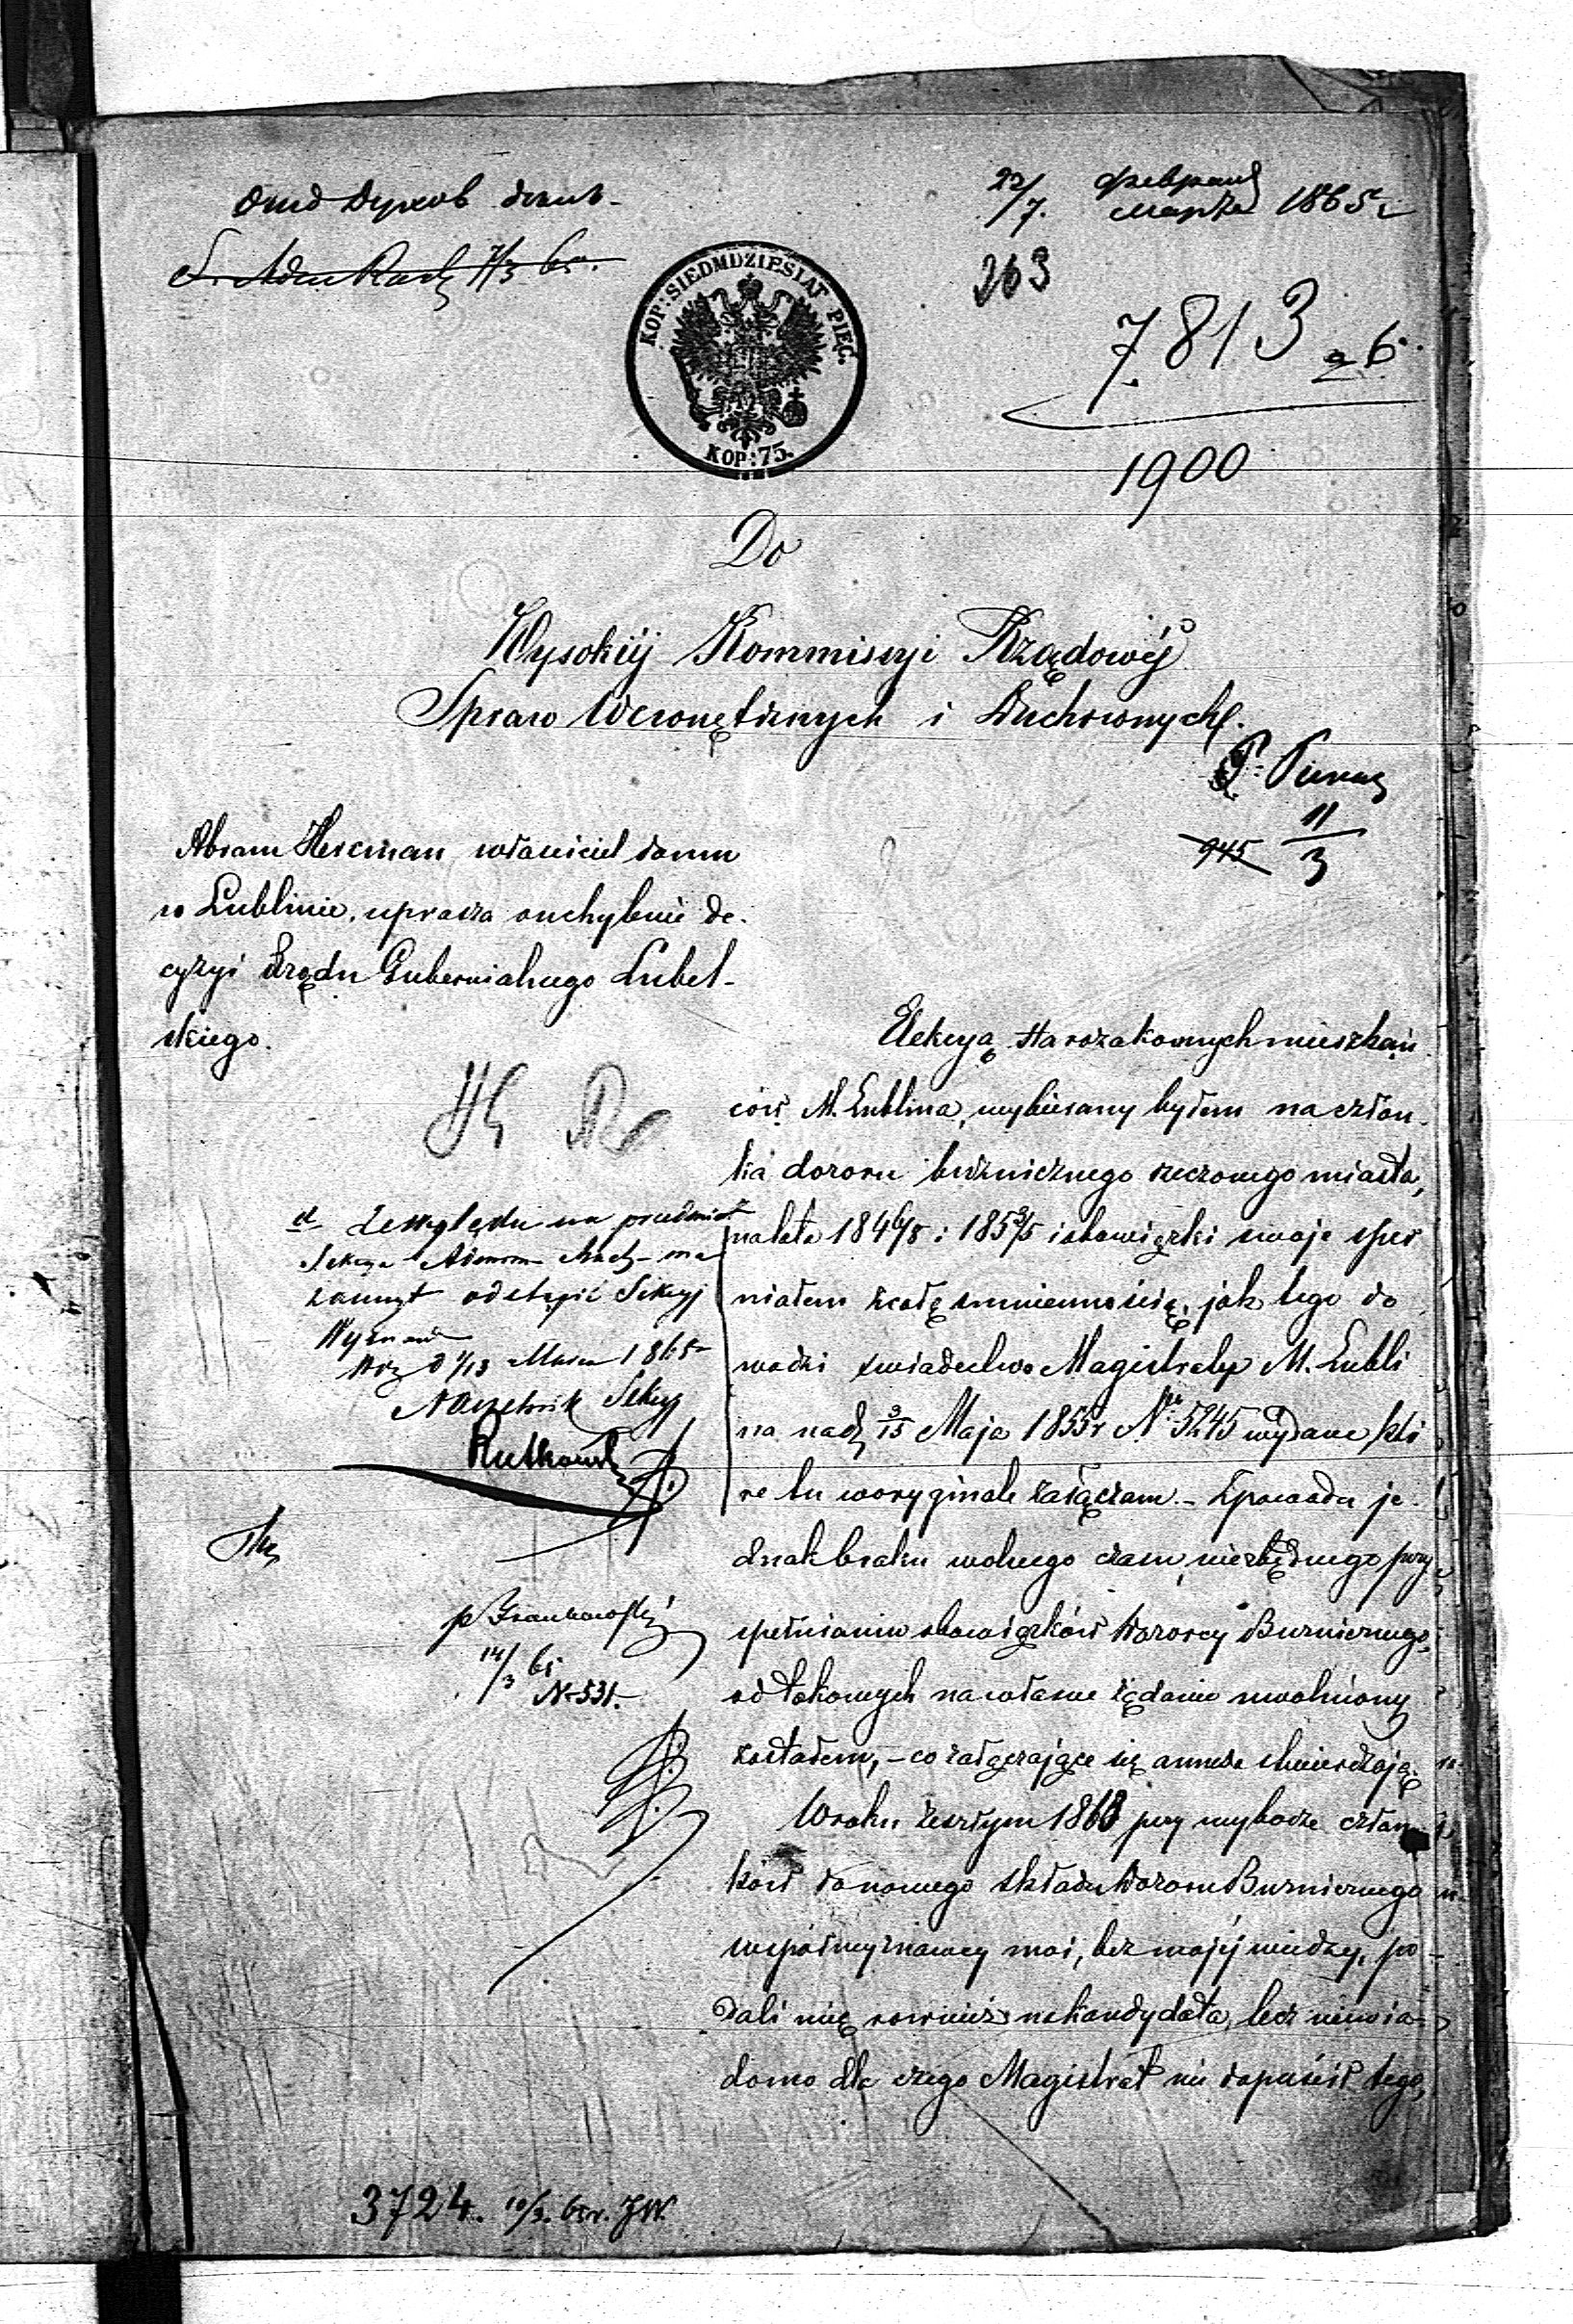 22/7. Февраля Марта 1865 г.
263
KOP: SIEDMDZIESIĄT PIĘĆ.
KOP: 75.
7813 a 6
1900
Do
Wysokiéj Kommissyi Rządowéj
Spraw Wewnętrznych i Duchownych.
11/3
945
Abram Herman właściciel domu
w Lublinie, uprasza o uchylenie de-
cyzyi Rządu Gubernialnego Lubel-
skiego.
Ze względu na przedmiot
Sekcya
odstąpić Sekcyi
Wyznań
Marca 1865
Naczelnik Sekcyi
Rutkowski
14/3 65
N. 531.
Elekcyą Starozakonnych mieszkań
ców M. Lublina, wybierany byłem na człon-
ka dozoru bużnicznego rzeczonego miasta,
na lata 1846/8 i 1853/5 i obowiązki swoje speł
niałem z całą sumiennością, jak tego do
wodzi świadectwo Magistratu M. Lubli
na nadz 3/15 Maja 1855 r N. 5245 wydane któ
re tu w oryginale załączam. - Z powodu je-
dnak braku wolnego czasu, niezbędnego przy
spełnianiu obowiązków Dozorcy Bużnicznego,
od takowych na własne żądanie uwolniony
zostałem, - co załączające się annexa stwierdzają.
W roku zeszłym 1863 przy wyborze człon
ków do nowego składu Dozoru Bużnicznego
współwyznawcy moi, bez mojéj wiedzy, po-
dali mię również na kandydata, lecz niewia-
domo dla czego Magistrat nie dopuścił tego,
3724. 10/3. 65 r. JW.